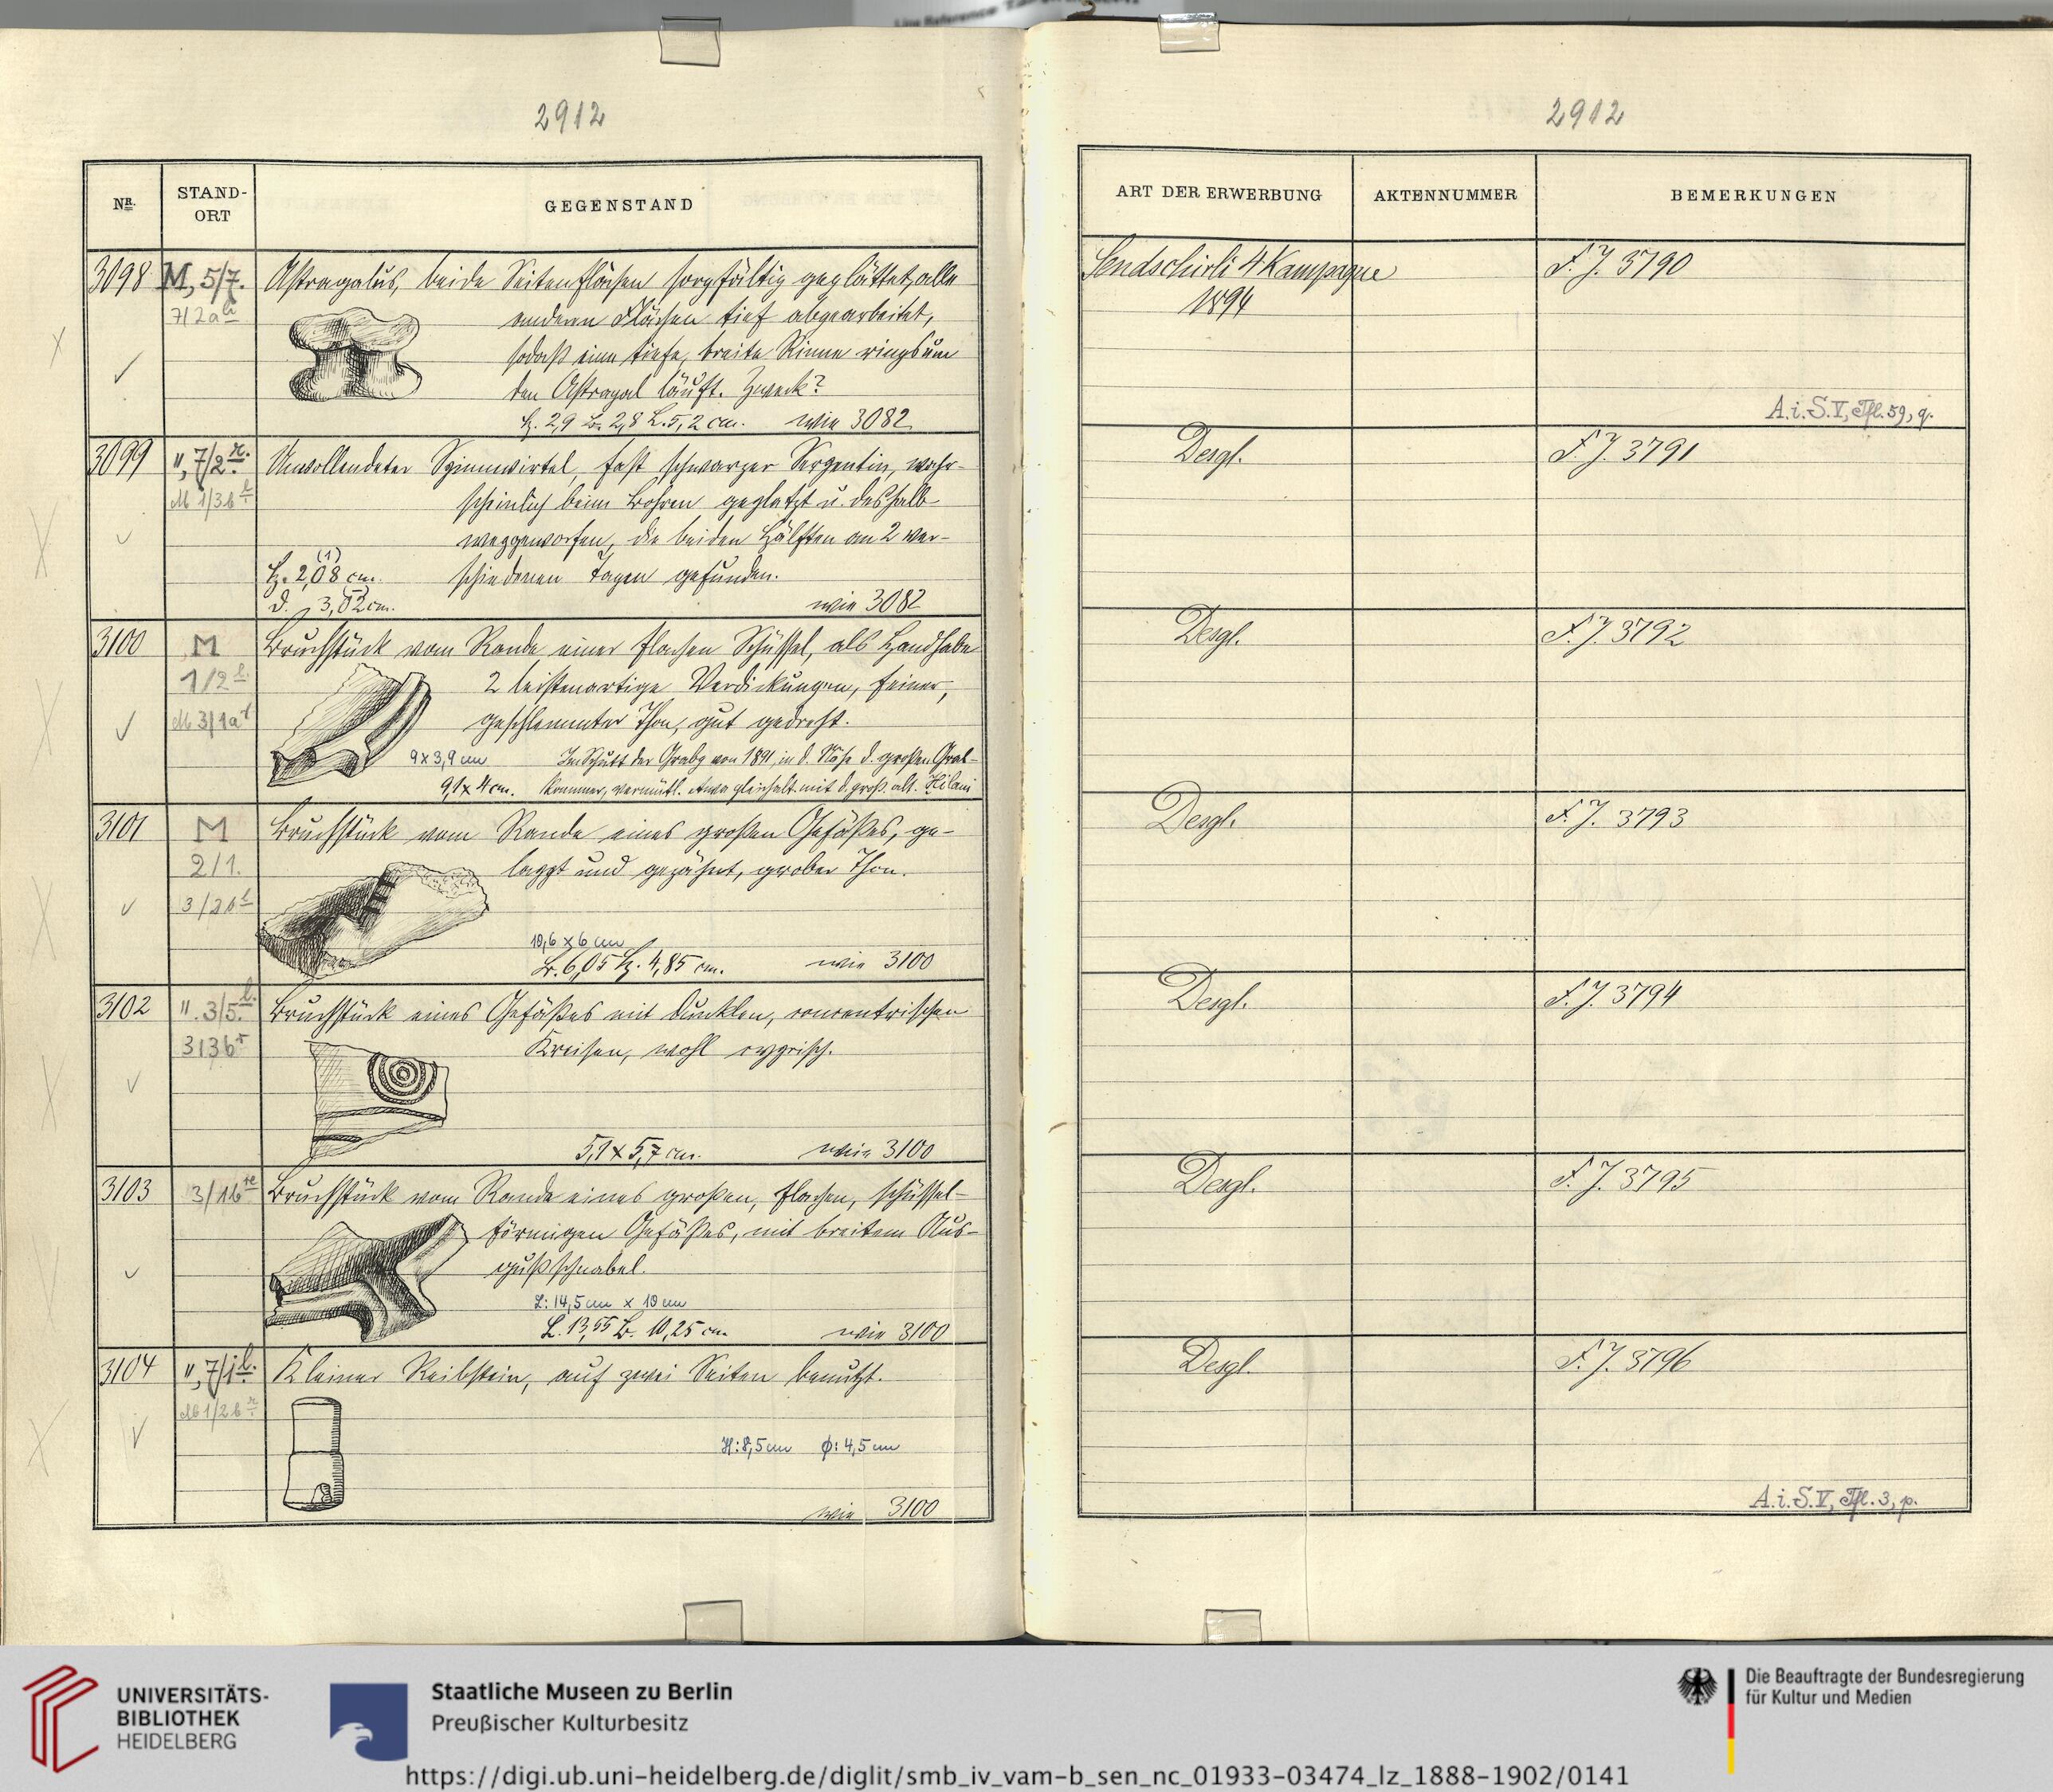 2912
NR.
STAND-
ORT
GEGENSTAND
3098 M, 5/7. Astragalus, beide Seitenflächen sorgfältig geglättet, alle
7/2a
anderen Flächen tief abgearbeitet,
sodaß eine tiefe, breite Rinne ringsum
den Astragal läuft. Zweck?
H. 2,9 Br. 2,8 L. 5,2 cm. wie 3082
3099 ", 7/2 r. Unvollendeter Spinnwirtel, fast schwarzer Serpentin, wahr-
M 1/3b l
scheinlich beim Bohren geplatzt u. deshalb
weggeworfen, die beiden Hälften an 2 ver-
H. 2,08 cm. (1) schiedenen Tagen gefunden.
D. 3,02 cm. wie 3082
3100 M Bruchstück vom Rande einer flachen Schüssel, als Handhabe
1/2 l.
2 leistenartige Verdickungen, feiner,
M 3/1a r geschlemmter Thon, gut gedreht.
9 x 3,9 cm Im Schutt der Grabg von 1891, in d. Nähe d. großen Grab-
9,1 x 4 cm. kammer, vermutl. etwa gleichalt. mit d. groß. alt. Hilani
3101 M Bruchstück vom Rande eines großen Gefäßes, ge-
2/1. lappt und gezähnt, grober Thon.
3/2b l
10,6 x 6 cm
Br. 6,05 H. 4,85 cm. wie 3100
3102 ". 3/5. l. Bruchstück eines Gefäßes mit dunklen, concentrischen
3/3b r Kreisen, wohl cyprisch.
5,1 x 5,7 cm. wie 3100
3103 3/1b re Bruchstück vom Rande eines großen, flachen, schüssel-
förmigen Gefäßes, mit breitem Aus-
gußschnabel.
L: 14,5 cm x 10 cm
L. 13,55 Br. 10,25 cm wie 3100
3104 ", 7/1 l. Kleiner Reibstein, auf zwei Seiten benutzt.
M 1/2b r
H: 8,5 cm Φ: 4,5 cm
wie 3100
2912
ART DER ERWERBUNG
AKTENNUMMER
BEMERKUNGEN
Sendschirli 4 Kampagne F. J. 3790
1894
A. i. S. V, Tfl. 59, q.
Desgl. F. J. 3791
Desgl. F. J. 3792
Desgl. F. J. 3793
Desgl. F. J. 3794
Desgl. F. J. 3795
Desgl. F. J. 3796
A. i. S. V, Tfl. 3, p.
UNIVERSITÄTS-
BIBLIOTHEK
HEIDELBERG
Staatliche Museen zu Berlin
Preußischer Kulturbesitz
Die Beauftragte der Bundesregierung
für Kultur und Medien
https://digi.ub.uni-heidelberg.de/diglit/smb_iv_vam-b_sen_nc_01933-03474_lz_1888-1902/0141